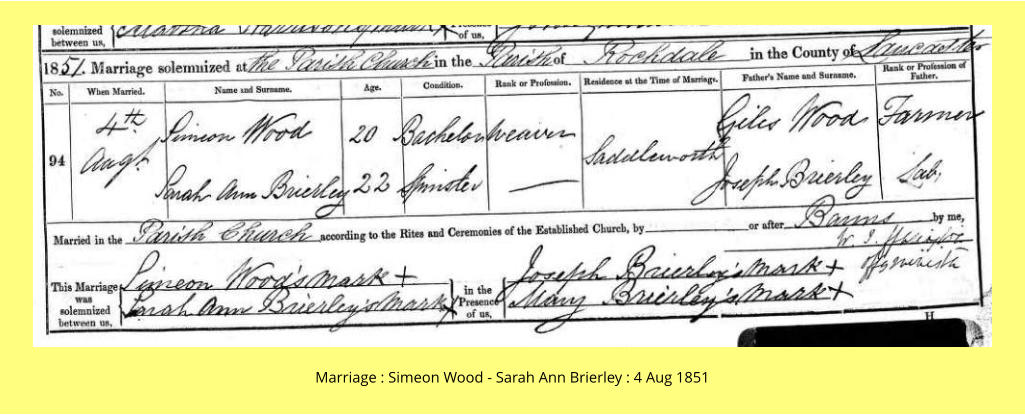 solemnized
between us,
Presence
of us,
1851. Marriage solemnized at the Parish Church in the Parish of Rochdale in the County of Lancaster
No. When Married. Name and Surname. Age. Condition. Rank or Profession. Residence at the Time of Marriage. Father's Name and Surname. Rank or Profession of Father.
94 4th Augt. Simeon Wood 20 Bachelor Weaver Saddleworth Giles Wood Farmer
Sarah Ann Brierley 22 Spinster — Joseph Brierley Lab,
Married in the Parish Church according to the Rites and Ceremonies of the Established Church, by or after Banns by me,
This Marriage was solemnized between us, Simeon Wood's mark + in the Presence of us, Joseph Brierley's mark +
Sarah Ann Brierley's mark X Mary Brierley's mark +
H
Marriage : Simeon Wood - Sarah Ann Brierley : 4 Aug 1851